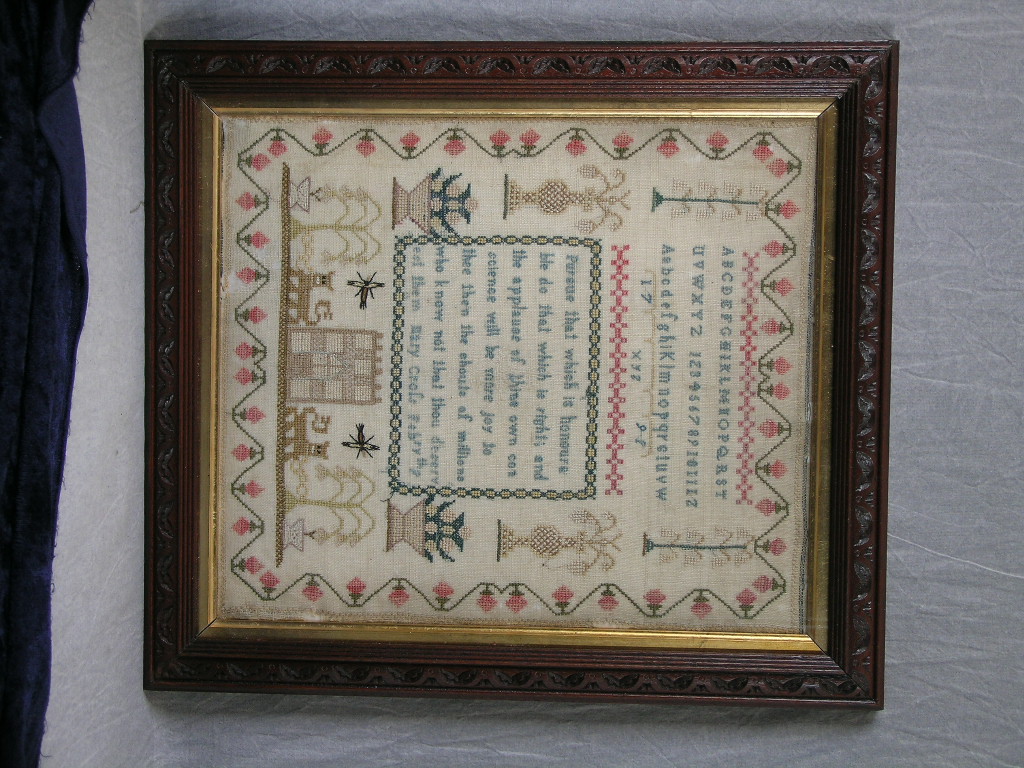 ABCDEFGHIKLMNOPQRST
UVWXYZ 123456789101112
Aabcdefghiklmnopqrstuvw
17 xyz 98
Pursue that which is honoura
ble do that which is right; and
the applause of thine own con
science will be more joy to
thee then the shouts of millions
who know not that thou deserv
est them Mary